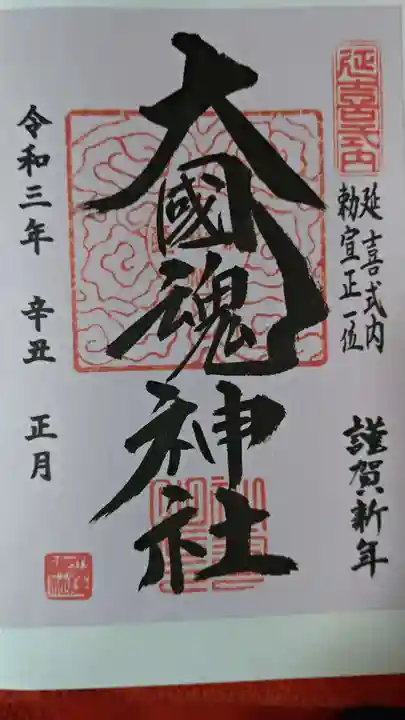 延喜式内
延喜式内
勅宣正一位
謹賀新年
大國魂神社
令和三年 辛丑 正月